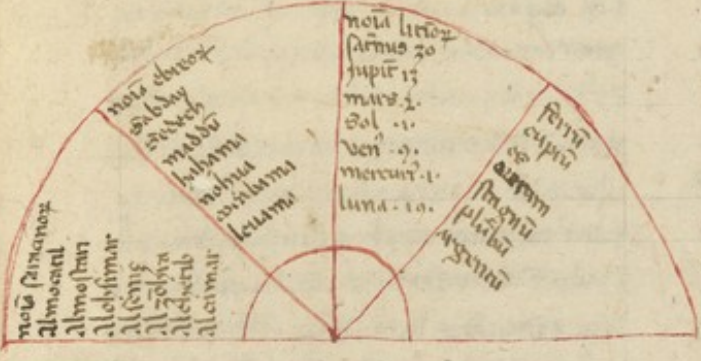 noīa sarracenoꝝ
almocatil
almostari
alobsimar
alsemç
alzoh̄ra
alchetib
alcamar
noīa ebreoꝝ
sabday
sedech
maddū
hahama
nohua
cochama
leuama
noīa litīoꝝ
sat̄nus 30
Jupit̄ 13
mars .2.
Sol .1.
ven9 .9.
mercuri9 .1.
luna .19.
ferrū
cuprū
es
aurum
stagnū
plūbū
argentū